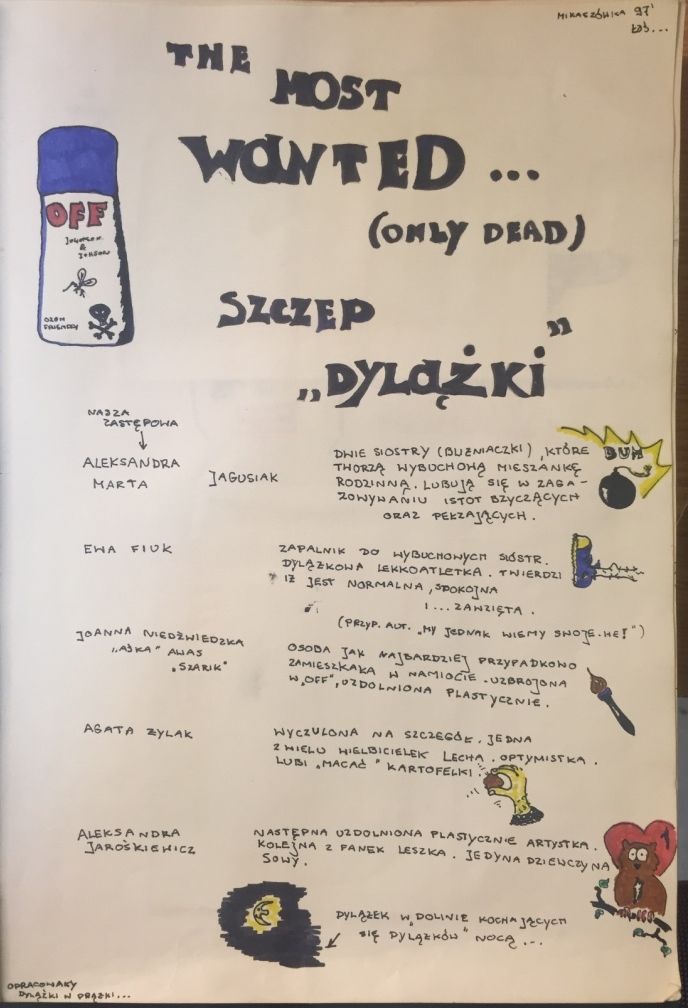 MIKASZÓWKA 97'
ŁOŚ...
THE MOST
WANTED ...
(ONLY DEAD)
OFF
JOHNSON
&
JOHNSON
OZON
FRIENDLY
SZCZEP
„DYLĄŻKI"
NASZA
ZASTĘPOWA
ALEKSANDRA
MARTA
JAGUSIAK
DWIE SIOSTRY (BUŹNIACZKI), KTÓRE
TWORZĄ WYBUCHOWĄ MIESZANKĘ
RODZINNĄ. LUBUJĄ SIĘ W ZAGA-
ZOWYWANIU ISTOT BZYCZĄCYCH
ORAZ PEŁZAJĄCYCH.
BUM
EWA FIUK
ZAPALNIK DO WYBUCHOWYCH SIÓSTR.
DYLĄŻKOWA LEKKOATLETKA. TWIERDZI
IŻ JEST NORMALNA, SPOKOJNA
I... ZAWZIĘTA.
(PRZYP. AUT. „MY JEDNAK WIEMY SWOJE. HE!")
JOANNA NIEDŹWIEDZKA
„AŚKA" ALIAS
„SZARIK"
OSOBA JAK NAJBARDZIEJ PRZYPADKOWO
ZAMIESZKAŁA W NAMIOCIE. UZBROJONA
W „OFF", UZDOLNIONA PLASTYCZNIE.
AGATA ŻYLAK
WYCZULONA NA SZCZEGÓŁ. JEDNA
Z WIELU WIELBICIELEK LECHA. OPTYMISTKA.
LUBI „MACAĆ" KARTOFELKI.
ALEKSANDRA
JAROŚKIEWICZ
NASTĘPNA UZDOLNIONA PLASTYCZNIE ARTYSTKA.
KOLEJNA Z FANEK LESZKA. JEDYNA DZIEWCZYNA
SOWY.
DYLĄŻEK W „DOLINIE KOCHAJĄCYCH
SIĘ DYLĄŻKÓW" NOCĄ...
OPRACOWAŁY
DYLĄŻKI W PRĄŻKI...